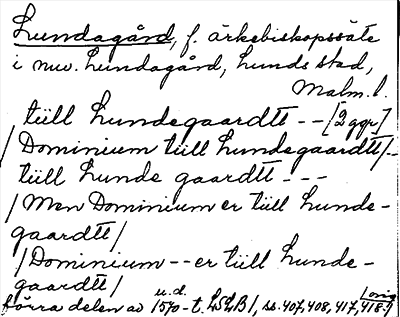 Lundagård, f. ärkebiskopssäte
i nuv. Lundagård, Lunds stad,
Malm. l.
tiill Lundegaardtt -- [2 ggr]
/Dominium tiill Lundegaardtt/--
tiill Lunde gaardtt ---
/Men Dominium er tiill Lunde-
gaardtt/
/Dominium -- er tiill Lunde-
gaardtt/
u.d. orig
förra delen av 1570-t. LSLB1, ss. 407, 408, 417, 418.